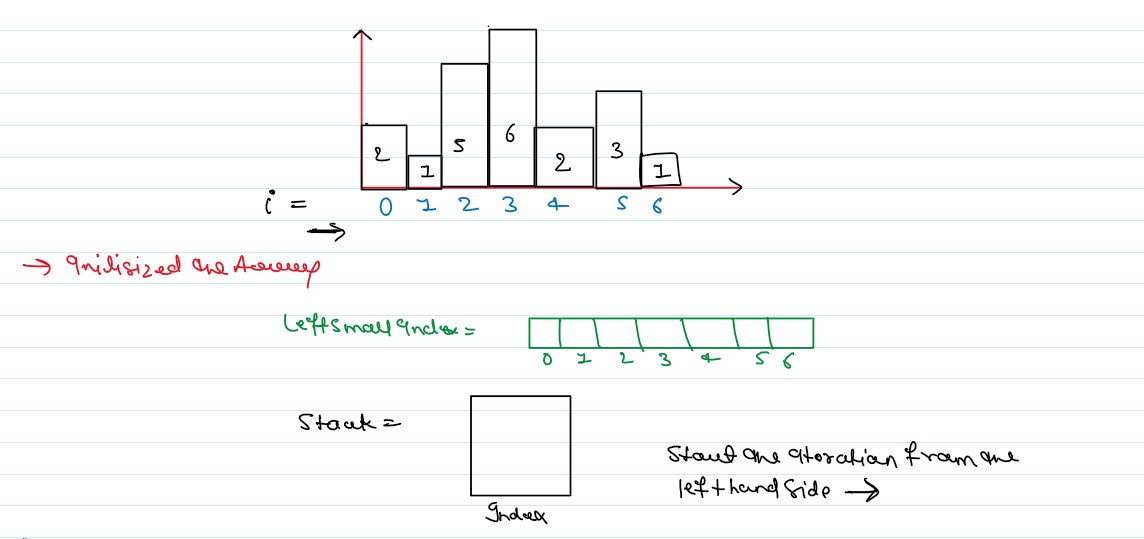 6
5
2
2
3
1
1
i = 0 1 2 3 4 5 6
→
→ Initisized the Array
Leftsmall Index =
0 1 2 3 4 5 6
Stack =
Start the iteration from the
left hand side →
Index